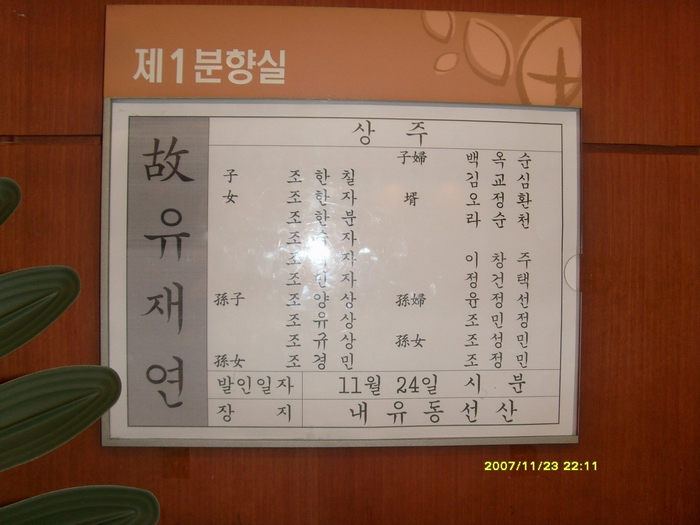 제1분향실
故 유재연
상 주
子婦 백옥순
子 조한칠 김교심
女 조한자 壻 오정환
조한분 라순천
조 자
조 자 이창주
조 자 정건택
孫子 조양상 孫婦 윤정선
조유상 조민정
조규상 孫女 조성민
孫女 조경민 조정민
발인일자 11월 24일 시 분
장 지 내유동선산
2007/11/23 22:11